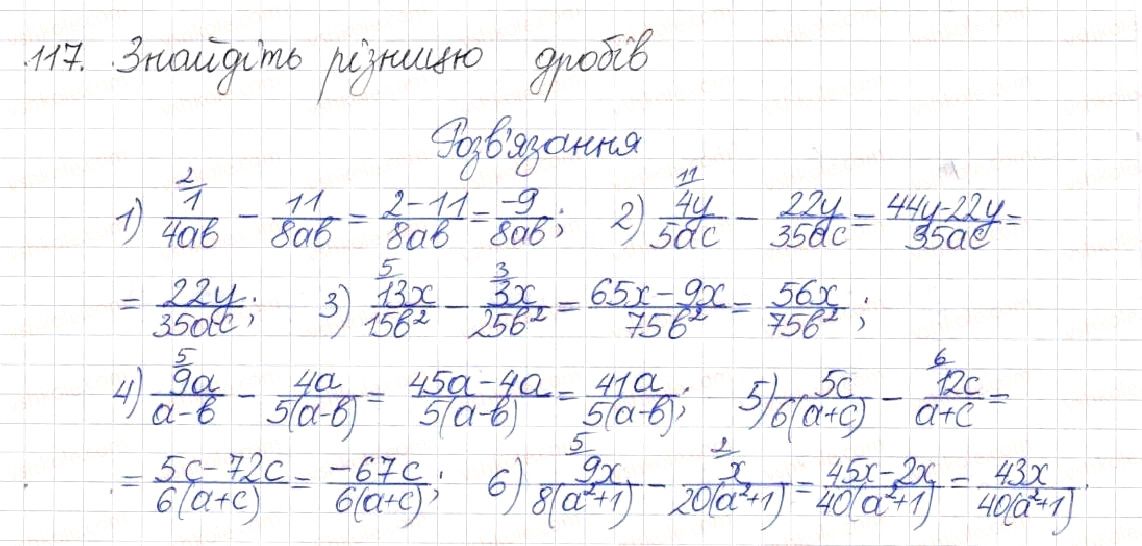 117. Знайдіть різницю дробів
Розв'язання
1) \frac{1}{4ab}^{2} - \frac{11}{8ab} = \frac{2-11}{8ab} = \frac{-9}{8ab}; 2) \frac{4y}{5ac}^{11} - \frac{22y}{35ac} = \frac{44y-22y}{35ac} =
= \frac{22y}{35ac}; 3) \frac{13x}{15b^2}^{5} - \frac{3x}{25b^2}^{3} = \frac{65x-9x}{75b^2} = \frac{56x}{75b^2};
4) \frac{9a}{a-b}^{5} - \frac{4a}{5(a-b)} = \frac{45a-4a}{5(a-b)} = \frac{41a}{5(a-b)}; 5) \frac{5c}{6(a+c)} - \frac{12c}{a+c}^{6} =
= \frac{5c-72c}{6(a+c)} = \frac{-67c}{6(a+c)}; 6) \frac{9x}{8(a^2+1)}^{5} - \frac{x}{20(a^2+1)}^{2} = \frac{45x-2x}{40(a^2+1)} = \frac{43x}{40(a^2+1)}.